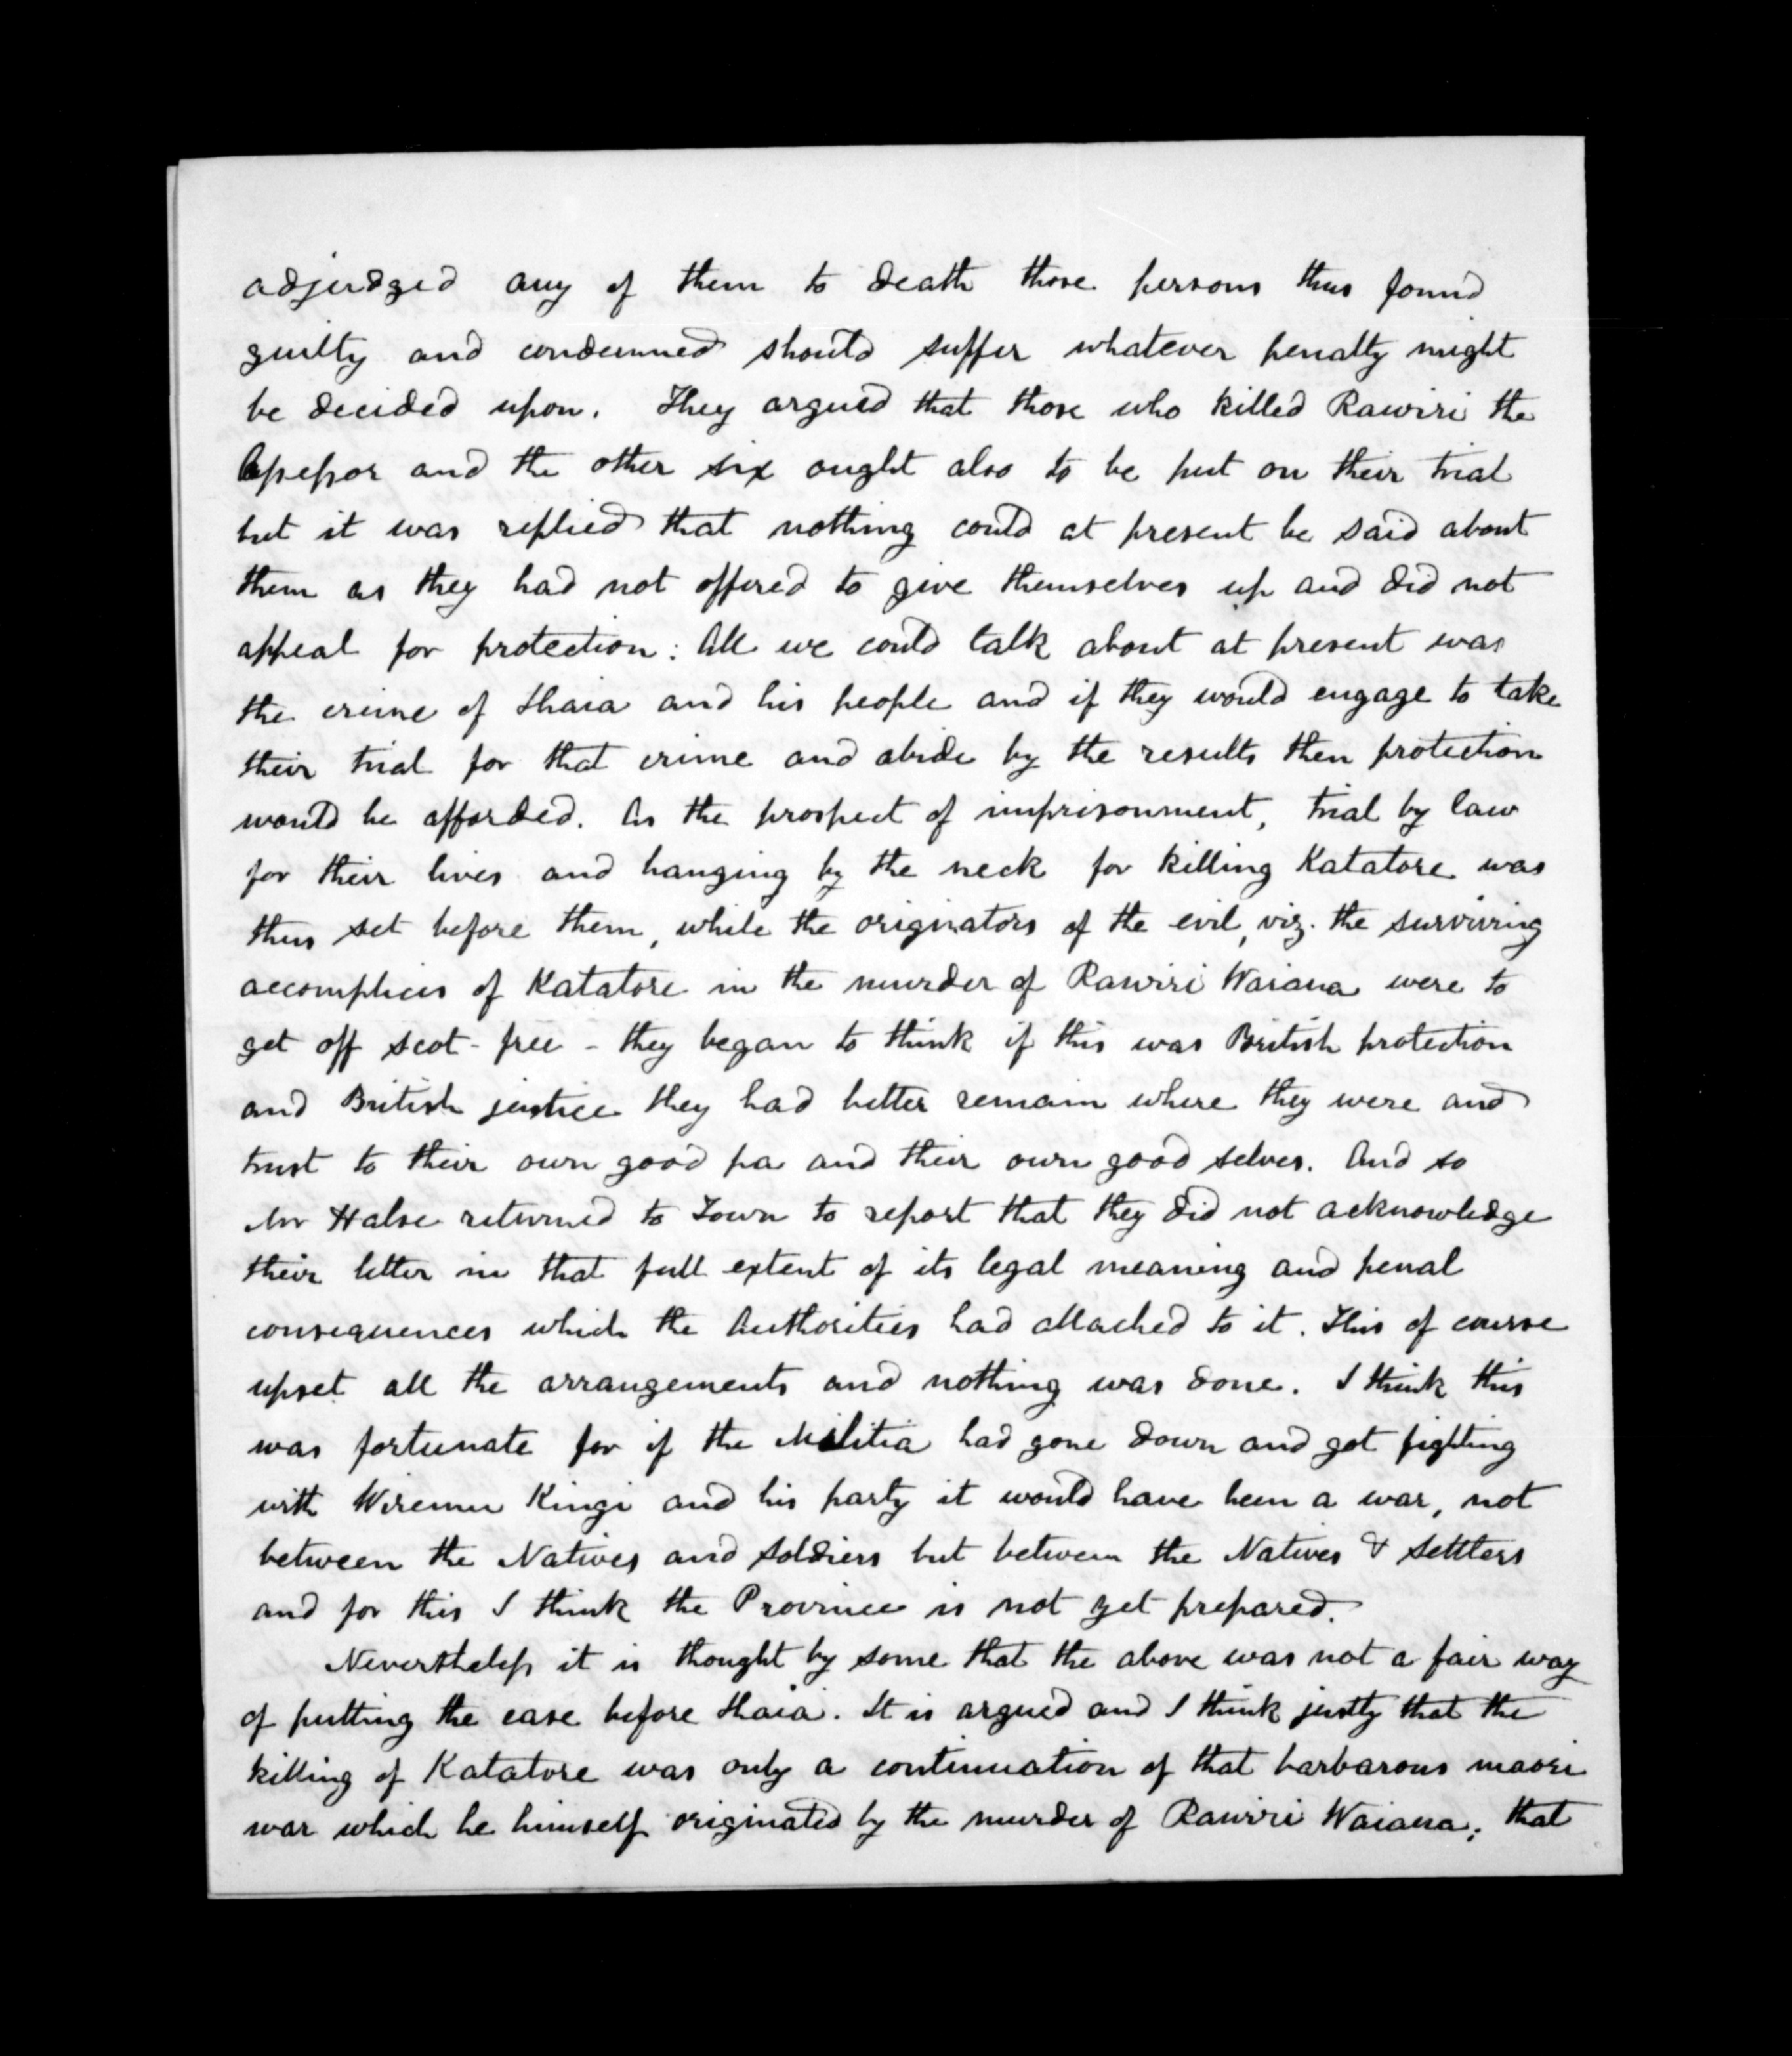 adjudged any of them to death those persons thus found
guilty and condemned should suffer whatever penalty might
be decided upon. They argued that those who killed Rawiri the
Assessor and the other six ought also to be put on their trial
but it was replied that nothing could at present be said about
them as they had not offered to give themselves up and did not
appeal for protection: All we could talk about at present was
the crime of Ihaia and his people and if they would engage to take
their trial for that crime and abide by the results then protection
would be afforded. As the prospect of imprisonment, trial by law
for their lives and hanging by the neck for killing Katatore was
thus set before them, while the originators of the evil, viz. the surviving
accomplices of Katatore in the murder of Rawiri Waiaua were to
get off scot-free - they began to think if this was British protection
and British justice they had better remain where they were and
trust to their own good pa and their own good selves. And so
Mr Halse returned to Town to report that they did not acknowledge
their letter in that full extent of its legal meaning and penal
consequences which the Authorities had attached to it. This of course
upset all the arrangements and nothing was done. I think this
was fortunate for if the Militia had gone down and got fighting
with Wiremu Kingi and his party it would have been a war, not
between the Natives and soldiers but between the Natives & Settlers
and for this I think the Province is not yet prepared.
Nevertheless it is thought by some that the above was not a fair way
of putting the case before Ihaia. It is argued and I think justly that the
killing of Katatore was only a continuation of that barbarous maori
war which he himself originated by the murder of Rawiri Waiaua; that